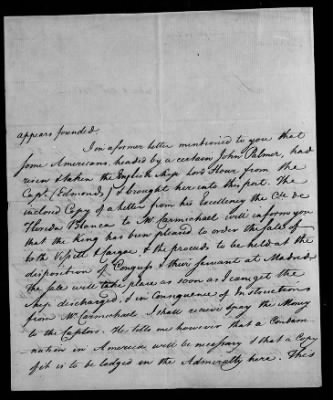 appears founded.
I in a former letter mentioned to you that
some Americans, headed by a certain John Palmer, had
risen & taken the English Ship Lord Howe from the
Capt. (Edmonds) & brought her into this port. The
inclosed Copy of a letter from his Excellency the Cte. de
Florida Blanca to Mr Carmichael will inform you
that the King has been pleased to order the sale of
both Vessell & Cargoe & the proceeds to be held at the
disposition of Congress & their servant at Madrid.
The sale will take place as soon as I can get the
Ship discharged, & in Consequence of Instructions
from Mr. Carmichael I shall receive & pay the Money
to the Captors. He tells me however that a Condem
nation in America, will be necessary & that a Copy
of it is to be lodged in the Admiralty here. This